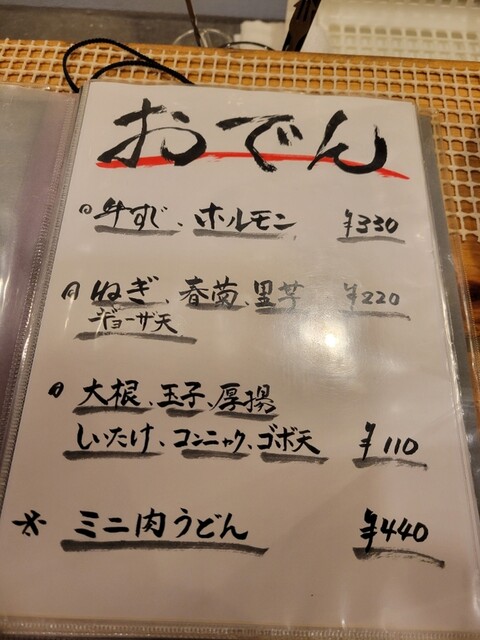 おでん
牛すじ、ホルモン ¥330
ねぎ、春菊、里芋 ¥220
ギョーザ天
大根、玉子、厚揚
しいたけ、コンニャク、ゴボ天 ¥110
ミニ肉うどん ¥440